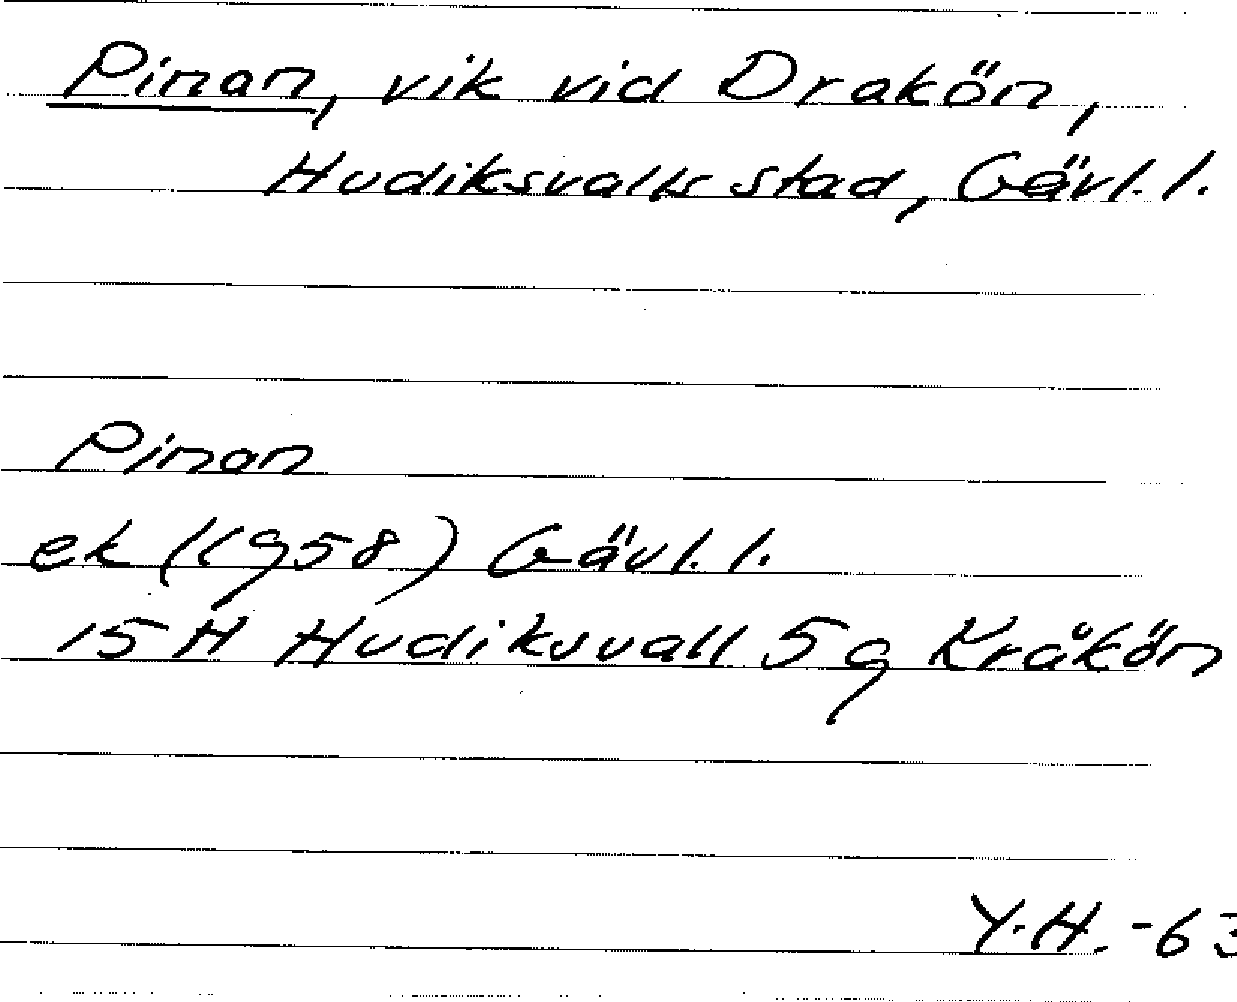 Pinan, vik vid Drakön,
Hudiksvalls stad, Gävl. l.
Pinan
ek (1958) Gävl. l.
15 H Hudiksvall 5 g Kråkön
Y.H. -63